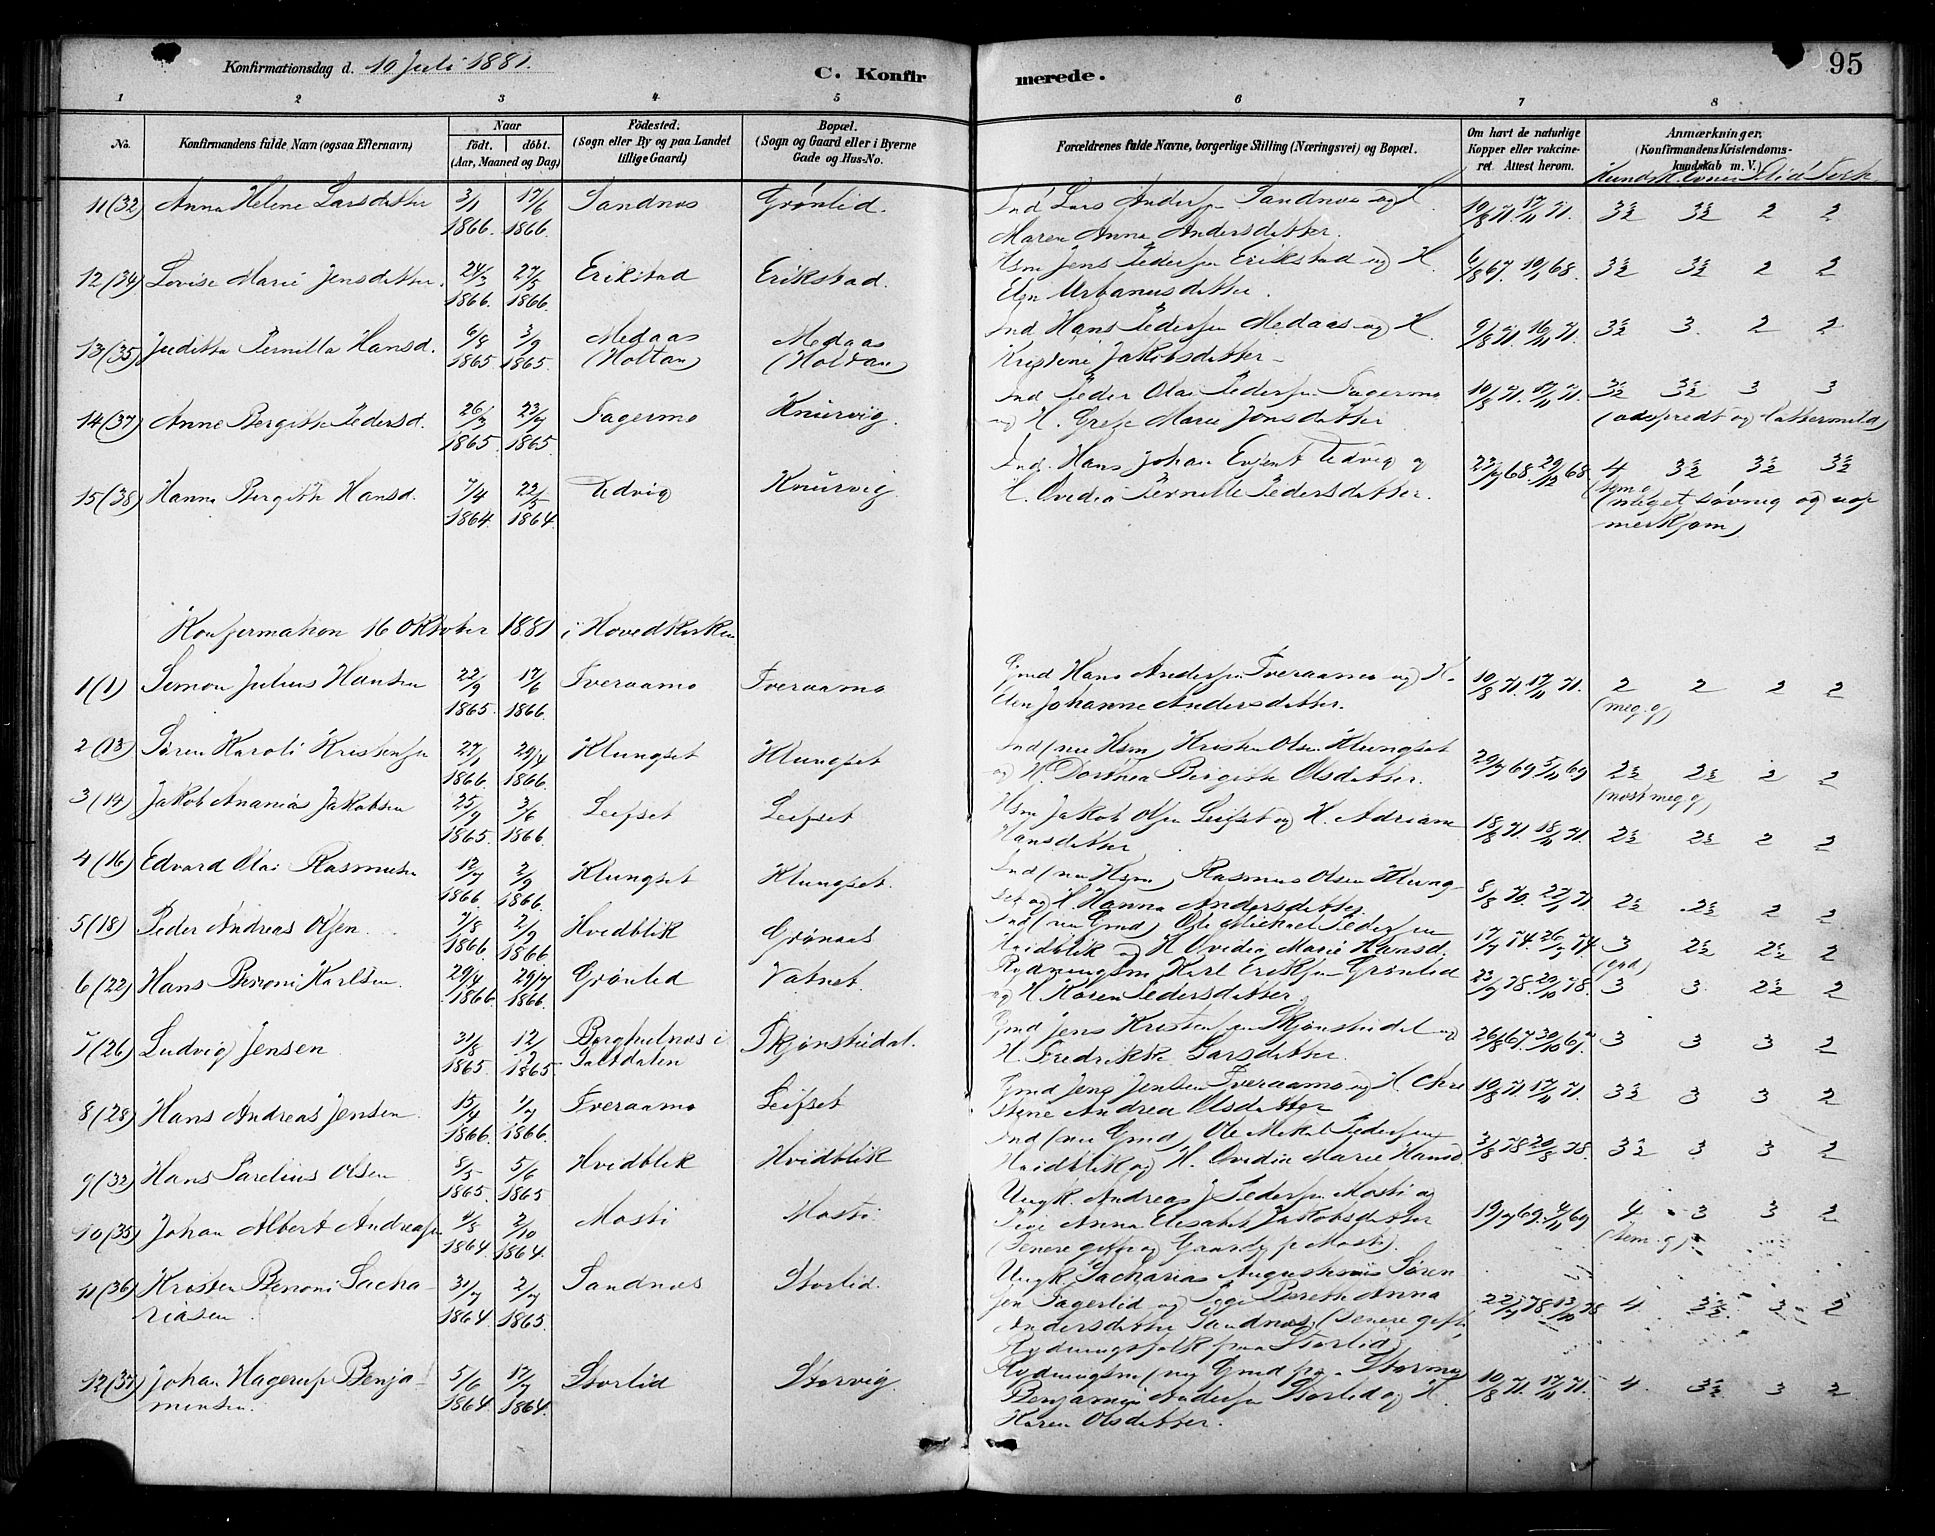 Konfirmationsdag d. 10 Juli 1881.
C. Konfir
merede.
95
1 2 3 4 5 6 7 8
No. Konfirmandens fulde Navn (ogsaa Efternavn) Naar født. døbt. (Aar, Maaned og Dag) Fødested. (Sogn eller By og paa Landet tillige Gaard) Bopæl. (Sogn og Gaard eller i Byerne Gade og Hus-No.
Forældrenes fulde Navne, borgerlige Stilling (Næringsvei) og Bopæl. Om havt de naturlige Kopper eller vakcineret. Attest herom. Anmærkninger. (Konfirmandens Kristendomskundskab m. V.)
Kundsk. Evner Flid
11 (32) Anna Helene Larsdatter 3/1 1866. 17/6 1866. Sandnes Grønlid. Ind Lars Andersen Sandnes og H.
Maren Anna Andersdatter. 10/8 71. 17/11 71. 3½ 3½ 2 2
12 (34) Lovise Marie Jensdatter. 24/3 1866. 27/5 1866. Erikstad Erikstad. Hsm Jens Pedersen Erikstad og H.
Elen Urbanusdatter. 6/8 67. 19/1 68. 3½ 3½ 2 2
13 (35) Juditha Pernilla Hansd. 6/8 1865 3/9 1865. Medaas (Holtan) Medaas (Holtan) Ind Hans Pedersen Medaas og H
Kristene Jakobsdatter 9/8 71. 16/11 71. 3½ 3. 2 2
14 (37) Anne Bergitte Pedersd. 26/3 1865. 23/7 1865. Fagermo Knurvig. Ind Peder Olai Pedersen Fagermo
og H. Grete Marie Jonsdatter 10/8 71. 17/11 71. 3½ 3½ 3 3
(adspredt og lattermild)
15 (38) Hanna Bergitte Hansd. 7/4 1864 22/5 1864. Tidvig Knurvig. Ind. Hans Johan Evjent Tidvig og
H. Ovedia Pernille Pedersdatter. 23/7 68. 29/12 68 4 3½ 3½ 3½
(meget søvnig og uop
merksom)
Konfirmation 16 Oktober 1881 i Hovedkirken
1 (1) Simon Julius Hansen 22/9 1865. 17/6 1866. Tveraamo Tveraamo Gmd Hans Andersen Tveraamo og H.
Elen Johanne Andersdatter. 10/8 71. 17/11 71. 2 2 2 2
(meg. g)
2 (13) Søren Karoli Kristensen 27/1 1866. 29/4 1866. Klungset Klungset Ind (nu Hsm) Kristen Olsen Klungset
og H. Dorthea Bergitte Olsdatter. 29/7 69 5/11 69 2½ 2½ 2 2
(næst meg. g)
3 (14) Jakob Ananias Jakobsen 25/9 1865. 3/6 1866. Leifset Leifset Hsm Jakob Olsen Leifset og H. Adriane
Hansdatter 18/8 71. 18/11 71. 2½ 2½ 2 2
4 (16) Edvard Olai Rasmusen 12/7 1866. 2/9 1866. Klungset Klungset. Ind (nu Hsm) Rasmus Olsen Klung-
set og H. Hanna Andersdatter 8/8 70. 27/1 71 2½ 2½ 2 2
5 (18) Peder Andreas Olsen. 7/8 1866. 2/9 1866. Hvidblik Grønaas Ind (nu Gmd) Ole Michael Pedersen
Hvidblik og H Ovedia Marie Hansd. 17/7 74. 26/7 74 3 2½ 2½ 2
(god)
6 (22) Hans Benoni Karlsen. 29/4 1866. 29/7 1866. Grønlid Vatnet. Rydningsm. Karl Eriksen Grønlid
og H Karen Pedersdatter 22/7 78. 20/10 78. 3 3. 2½ 2
7 (26) Ludvig Jensen 31/8 1865. 12/2 1865. Borghulnes i Saltdalen Skjønstudal. Gmd Jens Kristensen Skjønstudal og
H. Fredrikke Larsdatter. 26/8 67. 30/10 67. 3 3 3 2
8 (28) Hans Andreas Jensen. 15/4 1866. 1/7 1866. Tveraamo Leifset Gmd Jens Jensen Tveraamo og H. Chri
stene Andrea Olsdatter 10/8 71. 17/11 71. 3½ 3 3 2
9 (32) Hans Parelius Olsen 8/5 1865. 5/6 1865 Hvidblik Hvidblik Ind (nu Gmd) Ole Mikal Pedersen
Hvidblik og H. Ovedia Marie Hansd. 3/8 78 20/8 78. 3½ 3 3 2
10 (35) Johan Albert Andreassen 4/8 1864 2/10 1864. Mosti Mosti. Ungk. Andreas J. Pedersen Mosti og
Pige Anna Elisabet Jakobsdatter
(Senere gifte og Gaardf. p. Mosti). 19/7 69. 4/11 69 4 3 3 2
(tem. g)
11 (36) Kristen Benoni Sacha-
riasen 31/7 1864 2/7 1865. Sandnes Storlid. Ungk Sacharias Augustinus Søren
sen Fagerlid og Pige Berethe Anna
Andersdatter Sandnes (Senere gifte,
Rydningsfolk paa Storlid) 22/7 78. 13/10 78 4 3½ 3 2
12 (37) Johan Hagerup Benja-
minsen. 5/6 1864 17/7 1864. Storlid Storvig. Rydningsm (nu Gmd paa Stormo)
Benjamin Andersen Storlid og H.
Karen Olsdatter. 10/8 71. 17/11 71. 4. 3½ 3 2